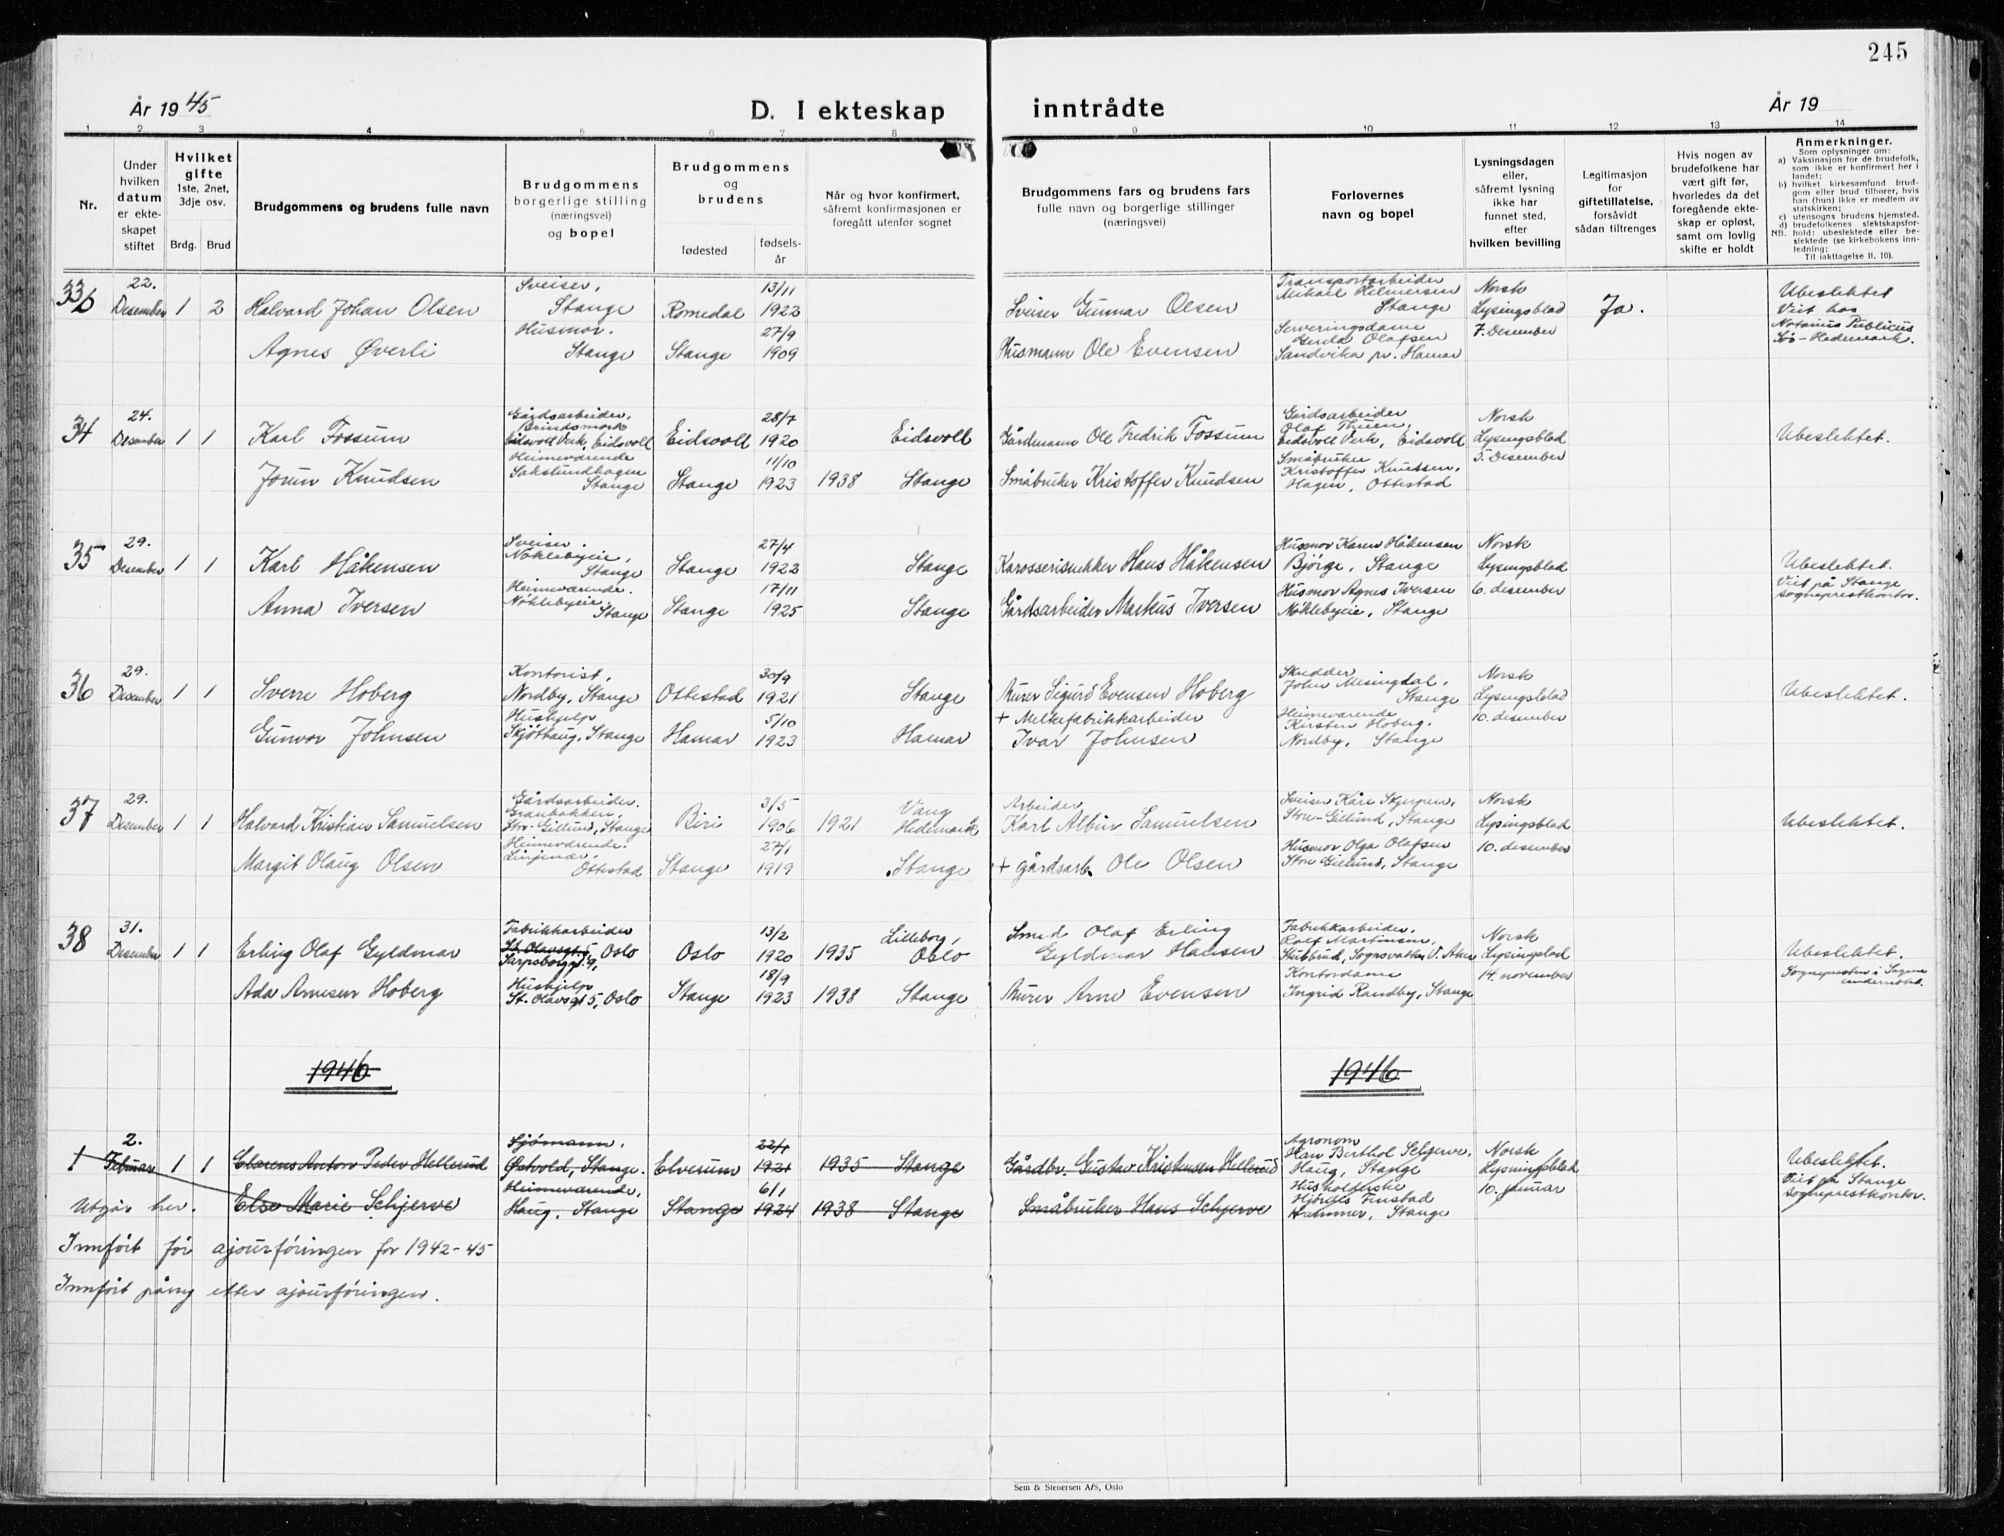 245
År 1945
D. I ekteskap inntrådte
År 19
1 2 3 4 5 6 7 8 9 10 11 12 13 14
Nr.
Under hvilken datum er ekte-skapet stiftet
Hvilket gifte
1ste, 2net, 3dje osv.
Brdg. Brud
Brudgommens og brudens fulle navn
Brudgommens borgerlige stilling (næringsvei) og bopel
Brudgommens og brudens
fødested
fødsels-år
Når og hvor konfirmert, såfremt konfirmasjonen er foregått utenfor sognet
Brudgommens fars og brudens fars fulle navn og borgerlige stillinger (næringsvei)
Forlovernes navn og bopel
Lysningsdagen eller, såfremt lysning ikke har funnet sted, efter hvilken bevilling
Legitimasjon for giftetillatelse, forsåvidt sådan tiltrenges
Hvis nogen av brudefolkene har vært gift før, hvorledes da det foregående ekte-skap er opløst, samt om lovlig skifte er holdt
Anmerkninger.
Som oplysninger om:
a) Vaksinasjon for de brudefolk, som ikke er konfirmert her i landet;
b) hvilket kirkesamfund brud-gom eller brud tilhører, hvis han (hun) ikke er medlem av statskirken;
c) utensogns brudens hjemsted,
d) brudefolkenes slektskapsfor-hold: ubeslektede eller be-slektede (se kirkebokens inn-ledning;
NB.
Til iakttagelse II. 10).
33b 22. Desember 1 2
Halvard Johan Olsen
Sveiser, Stange
Romedal 13/11 1922
Sveiser Gunnar Olsen
Transportarbeider Mikael Helmersen Stange
Norsk Lysingsblad 7. Desember
Ja.
Ubeslektet Viet hos Notarius Publicus Sør-Hedemark.
Agnes Øverli
Husmor. Stange
Stange 27/9 1909
Husmann Ole Evensen
Serveringsdame Gerda Olafsen Sandvika pr. Hamar
34 24. Desember 1 1
Karl Fossum
Gårdsarbeider, Eidsvoll Verk, Eidsvoll
Eidsvoll 28/7 1920
Eidsvoll
Gårdmann Ole Fredrik Fossum
Gårdsarbeider Olaf Eidsvoll Verk, Eidsvoll
Norsk Lysingsblad 5. Desember
Ubeslektet.
Jorun Knudsen
Heimeværende Stange
Stange 11/10 1923
1938 Stange
Småbruker Kristoffer Knudsen
Småbruker Kristoffer Knutsen, Hagen, Ottestad
35 29. Desember 1 1
Karl Håkensen
Sveiser. Nøklebyeie, Stange
Stange 27/4 1922
Stange
Karosserisnekker Hans Håkensen
Husmor Karen Håkensen Bjørge, Stange
Norsk Lysingsblad 6. desember
Ubeslektet. Viet på Stange sogneprestkontor.
Anna Iversen
Heimeværende. Nøklebyeie, Stange
Stange 17/11 1925
Stange
Gårdsarbeider Markus Iversen
Husmor Agnes Iversen Nøklebyeie, Stange
36 29. Desember 1 1
Sverre Hoberg
Kontorist, Nordby, Stange
Ottestad 30/9 1921
Stange
Murer Sigurd Evensen Hoberg
Skredder John Mesingdal, Stange
Norsk Lysingsblad 10. desember
Ubeslektet.
Gunvor Johnsen
Hushjelp Skjøthaug, Stange
Hamar 5/10 1923
Hamar
+ Melkefabrikkarbeider Ivar Johnsen
Heimeværende Kirsten Hoberg. Nordby, Stange
37 29. Desember 1 1
Halvard Kristian Samuelsen
Gårdsarbeider. Granbakken, Store-Gillund, Stange
Biri 3/5 1906
1921 Vang Hedemark
Arbeider Karl Albin Samuelsen
Sveiser Kåre Skjerpen, Store-Gillund, Stange
Norsk Lysingsblad 10. desember
Ubeslektet.
Margit Olaug Olsen
Heimeværende. Linjenær, Ottestad
Stange 27/1 1919
Stange
+ gårdsarb. Ole Olsen
Husmor Olga Olafsen Store Gillund, Stange
38 31. Desember 1 1
Erling Olaf Gyldmar
Fabrikkarbeider St. Olavsgt 5, Oslo Sarpsborgg. 9,
Oslo 13/2 1920
1935 Lilleborg, Oslo
Smed Olaf Erling Gyldmar Hansen
Fabrikkarbeider, Rolf Martinsen, Stubbrud, Sognsvatn, V. Aker
Norsk Lysingsblad 14. november
Ubeslektet. Sognepresten i Sagene underrettet.
Ada Arnesen Hoberg
Hushjelp St. Olavsgt 5, Oslo
Stange 18/9 1923
1938 Stange
Murer Arne Evensen
Kontordame Ingrid Randby, Stange
1946 1946
1 2. Februar 1 1
Clarens Anton Peder Hellerud
Sjømann, Østvold, Stange.
Elverum 22/4 1921
1935 Stange
Gårdbr. Gustav Kristensen Hellerud
Agronom Han Berthol Schjerve, Haug, Stange
Norsk Lysningsblad 10. januar
Ubeslektet. Viet på Stange sogneprestkontor.
Utgår her.
Else Marie Schjerve
Heimeværende, Haug, Stange
Stange 6/1 1924
1938 Stange
Småbruker Hans Schjerve
Husholderske Hjørdis Finstad Hammer, Stange
Innført før ajourføringen for 1942-45
Innført påny etter ajourføringen.
Sem & Stenersen A/S, Oslo